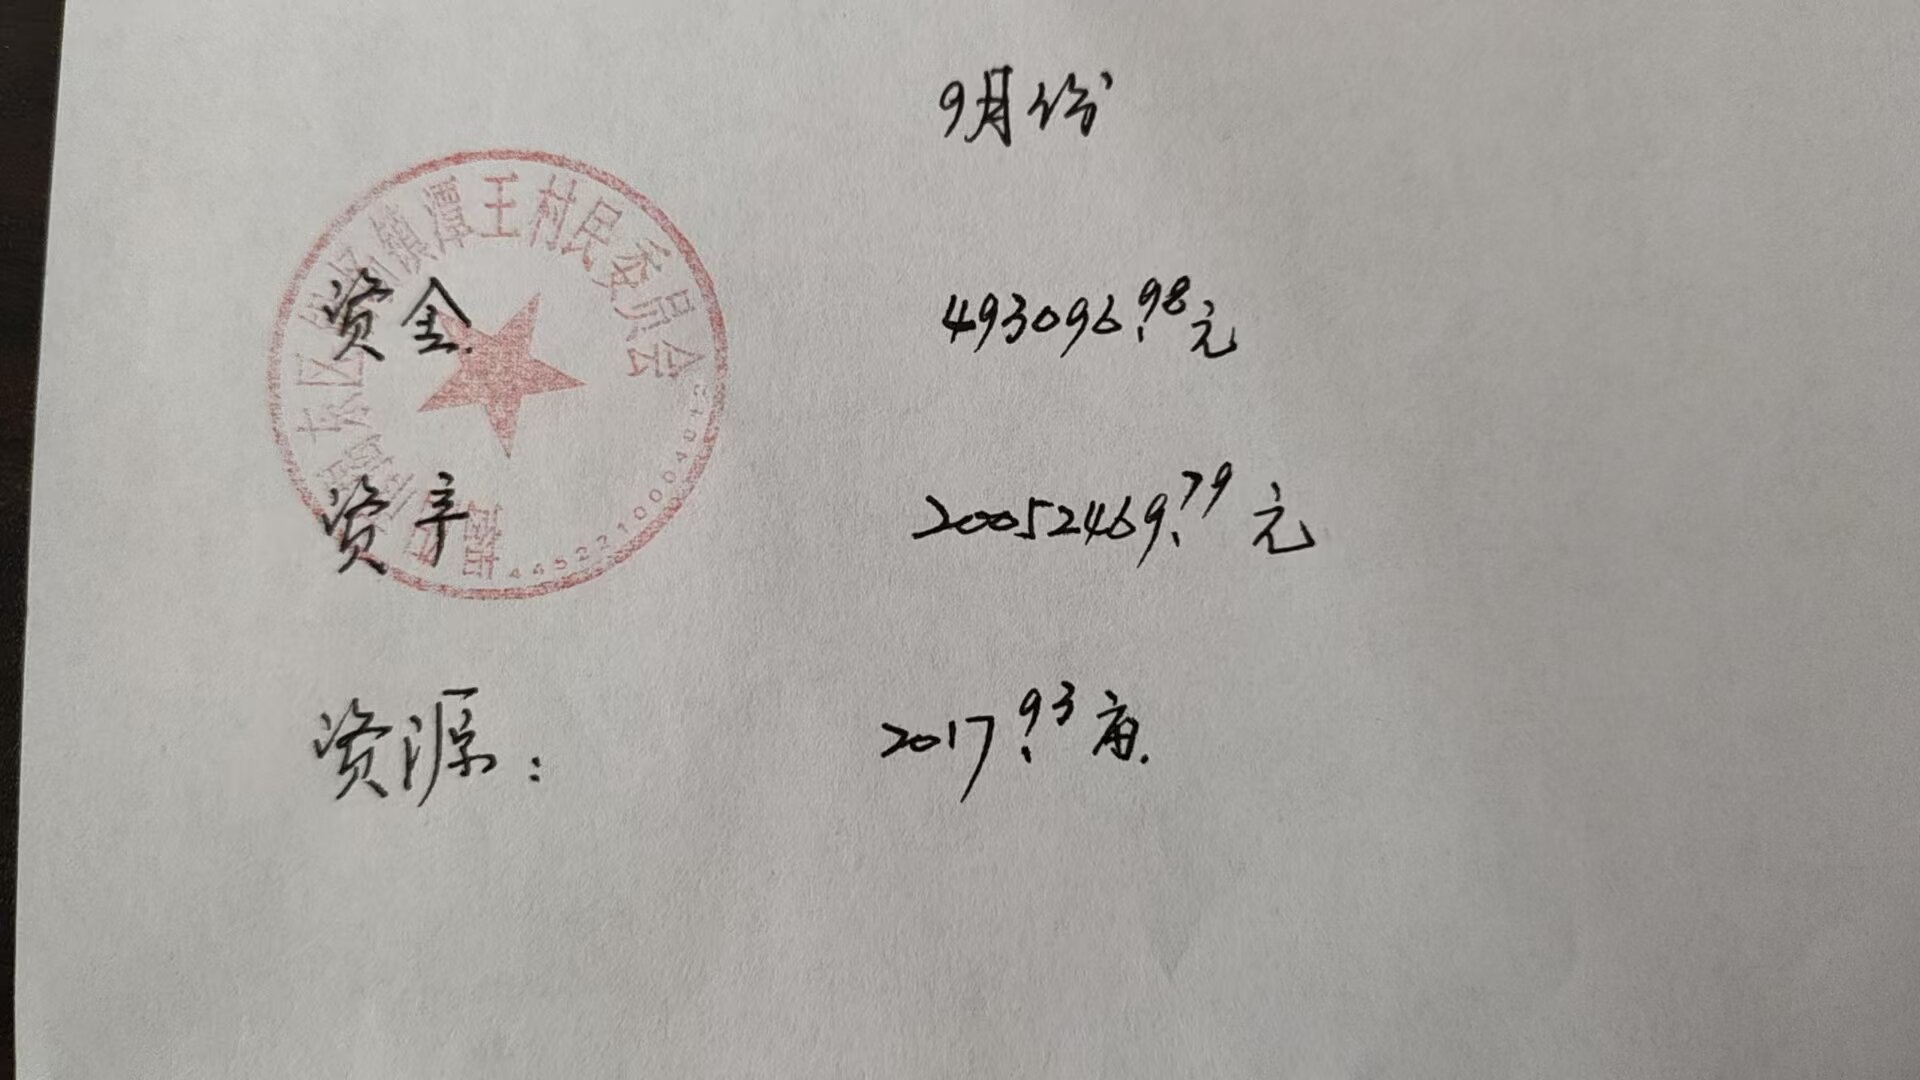 9月份
镇潭王村民委员会
资金 493096.98元
资产 20052469.79元
资源: 2017.93亩.